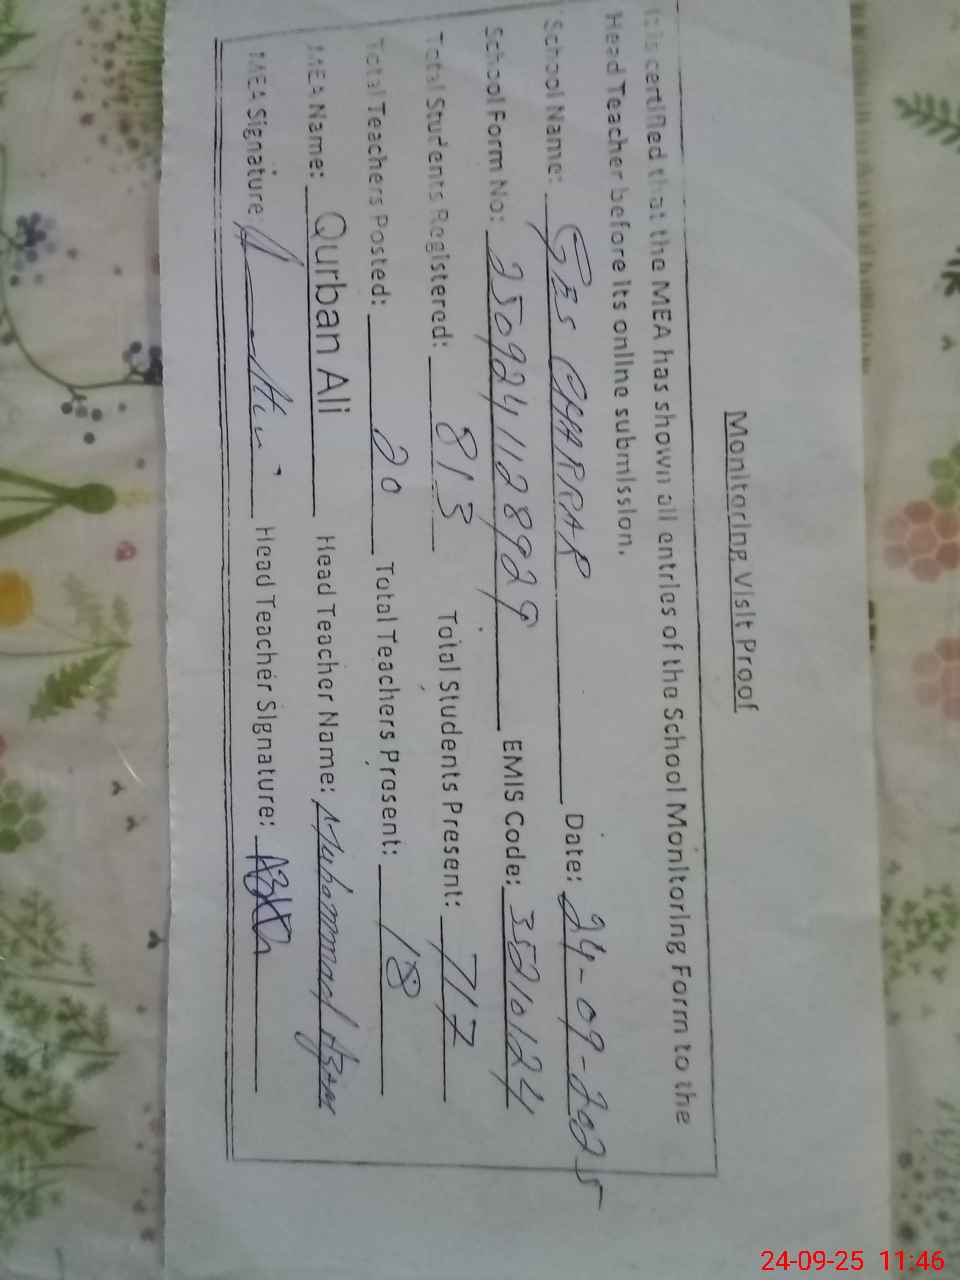 Monitoring Visit Proof
It is certified that the MEA has shown all entries of the School Monitoring Form to the
Head Teacher before its online submission.
School Name: GES CHARRAR Date: 24-09-2025
School Form No: 2509241128929 EMIS Code: 35210124
Total Students Registered: 813 Total Students Present: 717
Total Teachers Posted: 20 Total Teachers Present: 18
MEA Name: Qurban Ali Head Teacher Name: Muhammad Azam
MEA Signature: Head Teacher Signature:
24-09-25 11:46